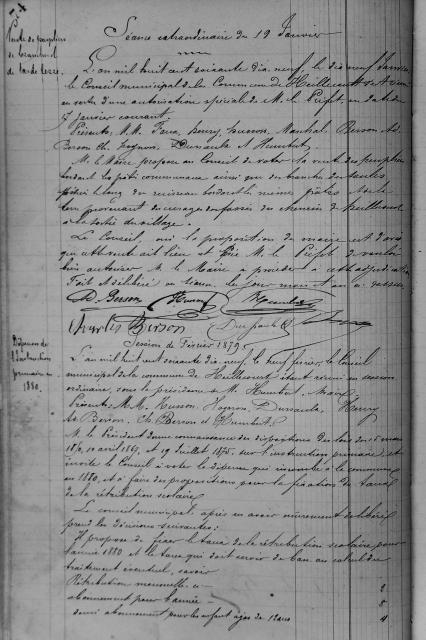 Séance extraordinaire du 19 Janvier
Vente de peupliers
de branches et
de tas de terre
L'an mil huit cent soixante dix neuf, le dix neuf Janvier
le Conseil municipal de la Commune de Heillecourt
en vertu d'une autorisation spéciale de M. le Préfet, en date du
7 Janvier courant.
Présents, M.M. Henry, Husson, Marchal, Berson Ad.
Berson Ch. Hogneron, Dussaulx et Humbert.
M. le Maire propose au Conseil de voter la vente des peupliers
bordant les pâtis communaux ainsi que des branches des saules
le long du ruisseau bordant les mêmes pâtis et de la
terre provenant du curage des fossés du chemin de Heillecourt
à la sortie du village.
Le Conseil, ouï la proposition du maire est d'avis
que cette vente ait lieu et prie M. le Préfet de vouloir
bien autoriser M. le Maire à procéder à cette adjudication
Fait et délibéré en séance, les jour, mois et an ci-dessus
Ad. Berson Husson Humbert
Charles Berson Dussaulx
Session de Février 1879
Dépenses de
l'Instruction
primaire en
1880.
L'an mil huit cent soixante dix neuf, le neuf février, le Conseil
municipal de la commune de Heillecourt, étant réuni en session
ordinaire, sous la présidence de M. Humbert, Maire,
Présents, M.M. Husson, Hogneron, Dussaulx, Henry
Ad. Berson, Ch. Berson et Humbert.
M. le Président donne connaissance des dispositions des lois des 15 mars
1850, 10 avril 1867, et 19 Juillet 1875, sur l'instruction primaire, et
invite le Conseil à voter la dépense qui incombe à la commune
en 1880, et à faire des propositions pour la fixation du taux
de la rétribution scolaire.
Le conseil municipal, après en avoir mûrement délibéré
prend les décisions suivantes:
Il propose de fixer le taux de la rétribution scolaire pour
l'année 1880 et le taux qui doit servir de base au calcul du
traitement éventuel, savoir
Rétribution mensuelle 2
abonnement pour l'année 8
demi abonnement pour les enfants âgés de 12 ans 4